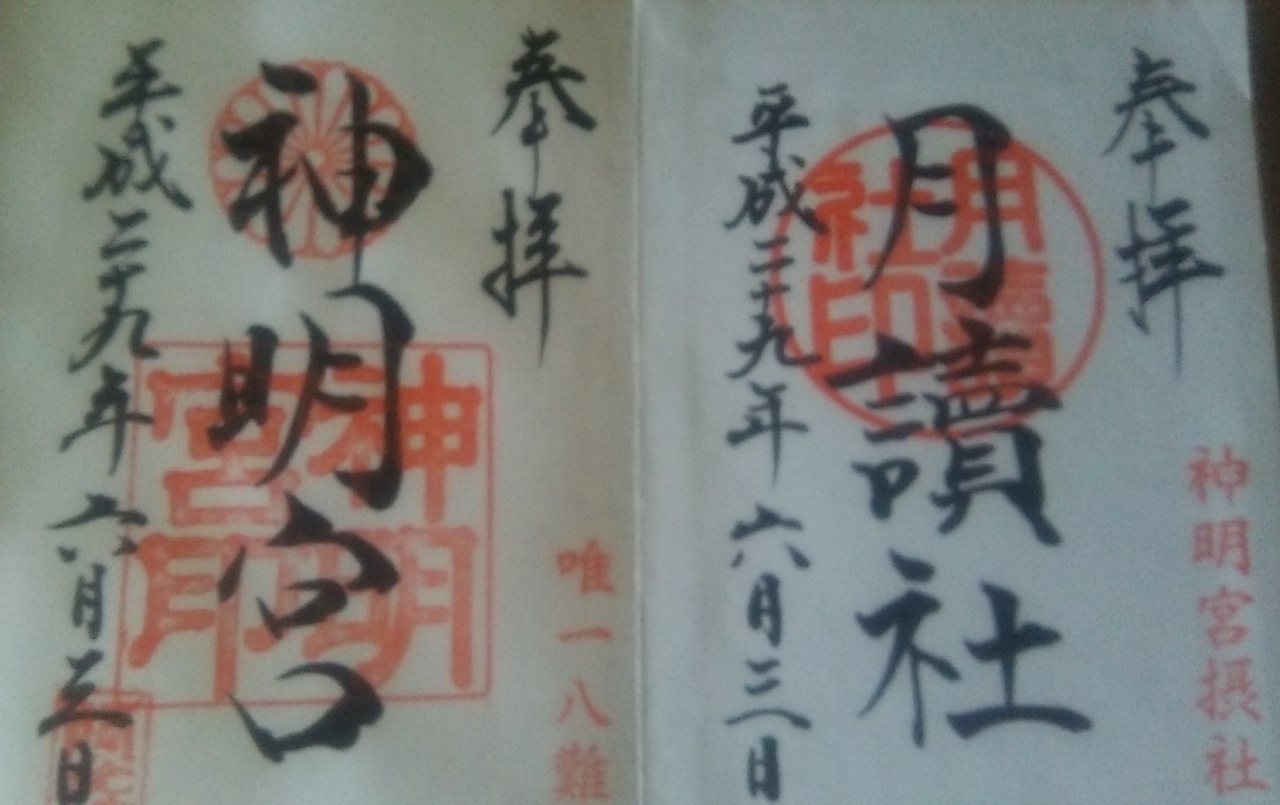 奉拝
神明宮摂社
月讀社印
月讀社
平成二十九年六月三日
奉拝
唯一八難
神明宮印
神明宮
平成二十九年六月三日